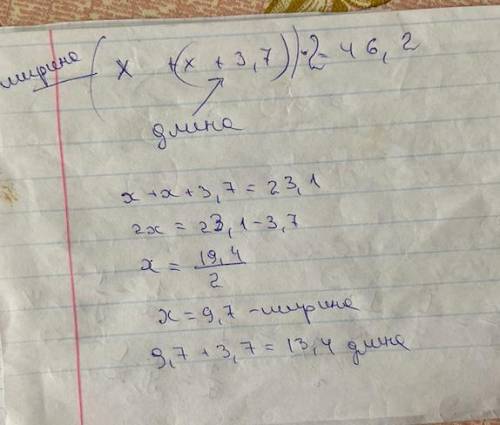 ширина (x + (x + 3,7)) · 2 = 46,2
длина
x + x + 3,7 = 23,1
2x = 23,1 - 3,7
x = 19,4 / 2
x = 9,7 - ширина
9,7 + 3,7 = 13,4 длина